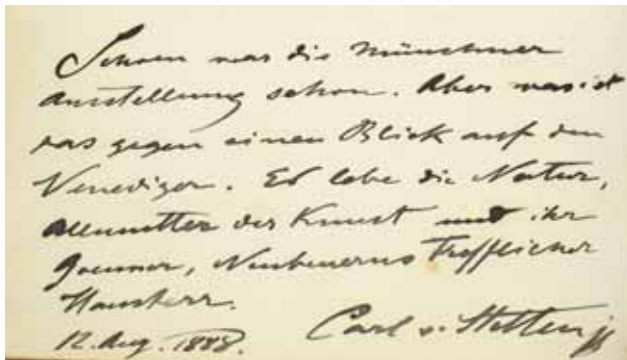 Schoen war die Münchner
Ausstellung schon. Aber was ist
das gegen einen Blick auf den
Venediger. Es lebe die Natur,
Allmutter der Kunst und ihr
Goenner, Neubeuerns trefflicher
Hausherr.
12. Aug. 1888. Carl v. Stetten jr